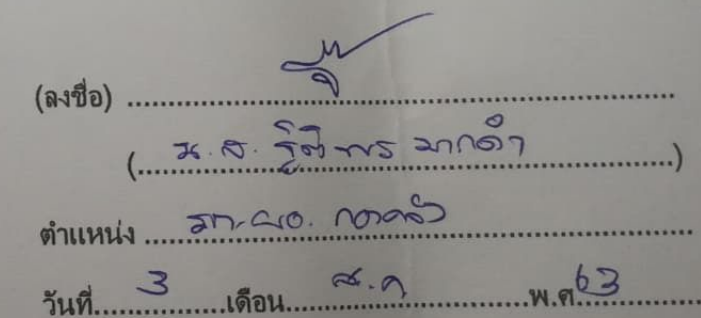 (ลงชื่อ)
(น.ส. ฐิติพร มากดำ)
ตำแหน่ง รก.ผอ. กอคลัง
วันที่ 3 เดือน ส.ค พ.ศ 63